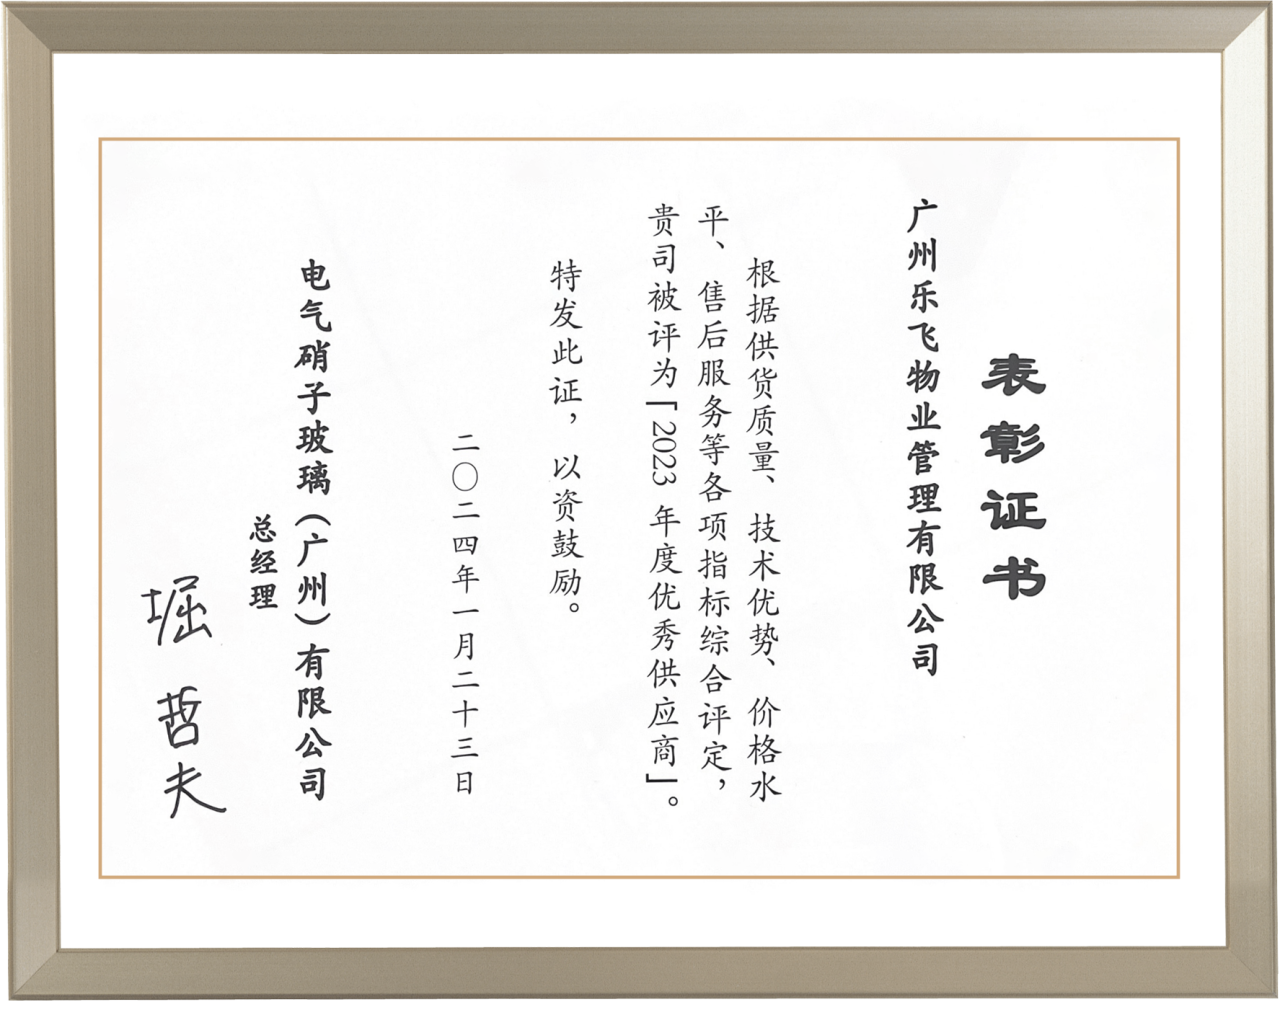 表彰证书
广州乐飞物业管理有限公司
根据供货质量、技术优势、价格水
平、售后服务等各项指标综合评定，
贵司被评为「2023 年度优秀供应商」。
特发此证，以资鼓励。
二〇二四年一月二十三日
电气硝子玻璃（广州）有限公司
总经理
堀 哲夫